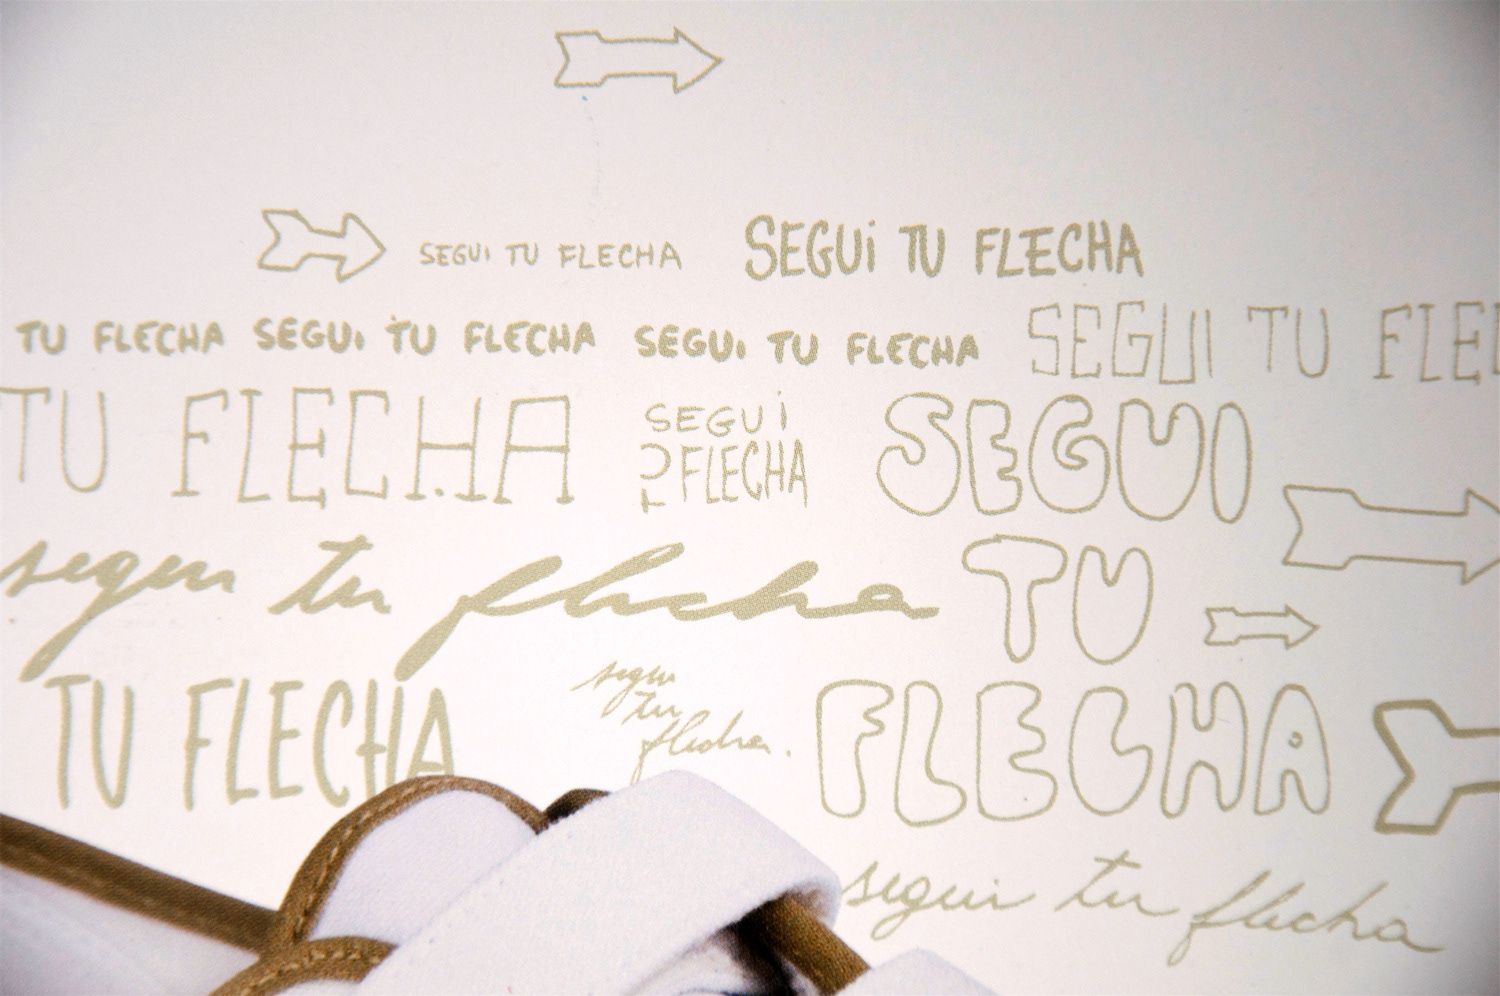 SEGUi TU FLECHA
SEGUi TU FLECHA
TU FLECHA SEGUi TU FLECHA SEGUi TU FLECHA
SEGUI TU FLE
TU FLECHA
SEGUi
TU FLECHA
SEGUI
TU
FLECHA
segui tu flecha
TU FLECHA
segui
tu
flecha.
segui tu flecha